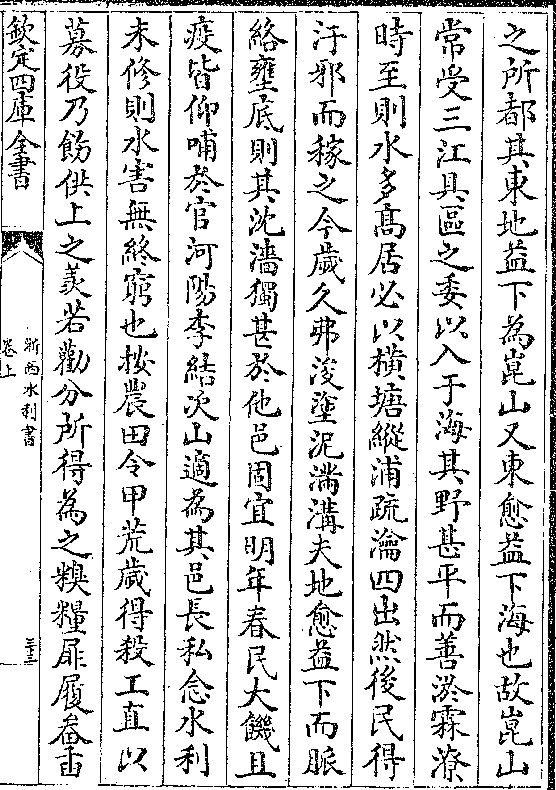 之所都其東地益下為崑山又東愈益下海也故崑山
常受三江具區之委以入于海其野甚平而善淤霖潦
時至則水多髙居必以橫塘縱浦疏瀹四出然後民得
汙邪而稼之今歲久弗浚塗泥滿溝夫地愈益下而脈
絡壅底則其沈濇獨甚於他邑固宜明年春民大饑且
疫皆仰哺於官河陽李結次山適為其邑長私念水利
未修則水害無終窮也按農田令甲荒歲得殺工直以
募役乃飭供上之羡若勸分所得為之糗糧扉屨畚臿
欽定四庫全書
浙西水利書
卷上
三十三